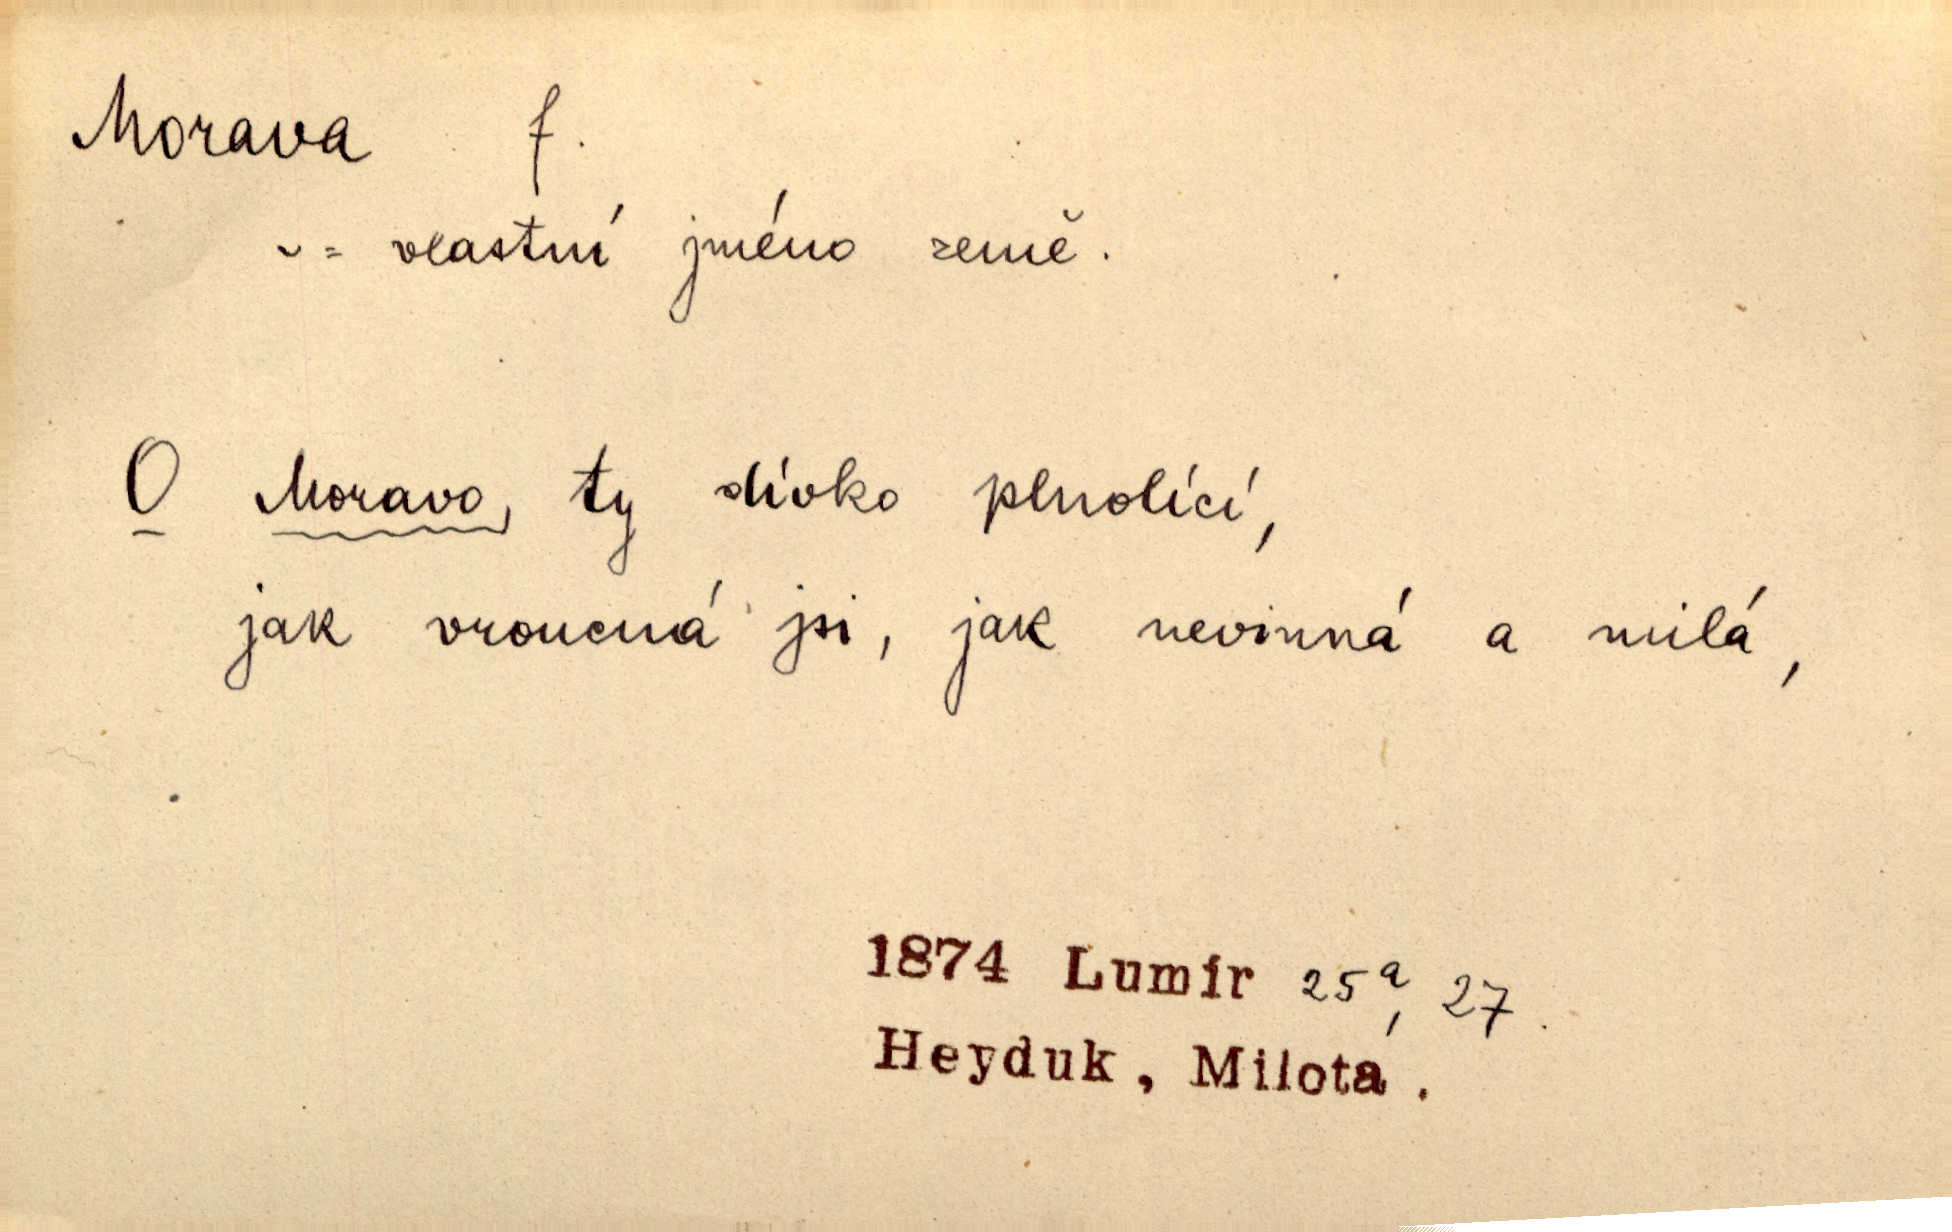 Morava f.
~ = vlastní jméno země.
O Moravo, ty dívko plnolící,
jak vroucná jsi, jak nevinná a milá,
1874 Lumír 25a, 27.
Heyduk, Milota.